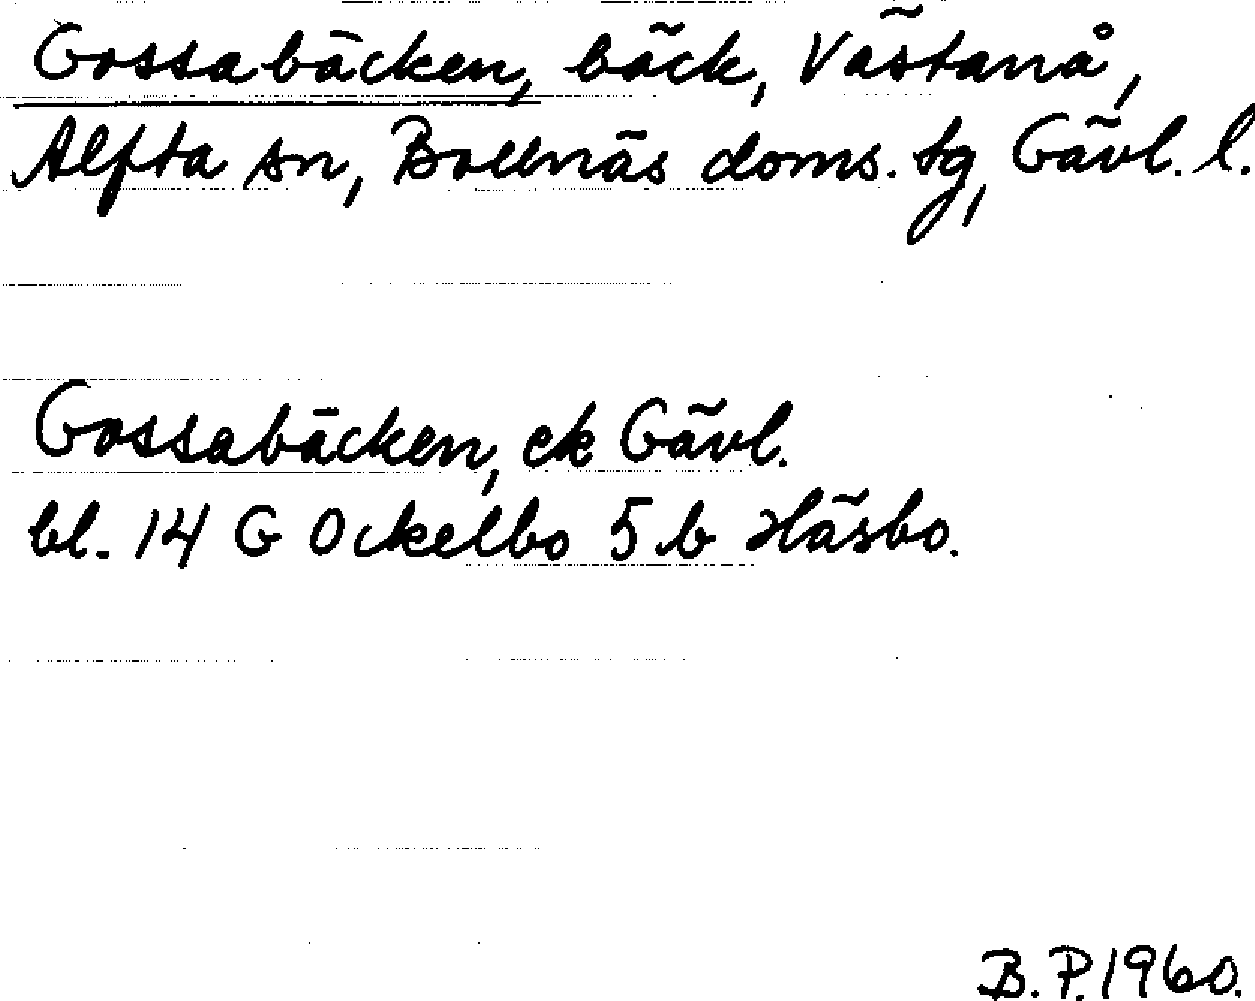 Gossabäcken, bäck, Västanå,
Alfta sn, Bollnäs doms. tg, Gävl. l.
Gossabäcken, ek Gävl.
bl. 14 G Ockelbo 5 b Häsbo.
B. P. 1960.